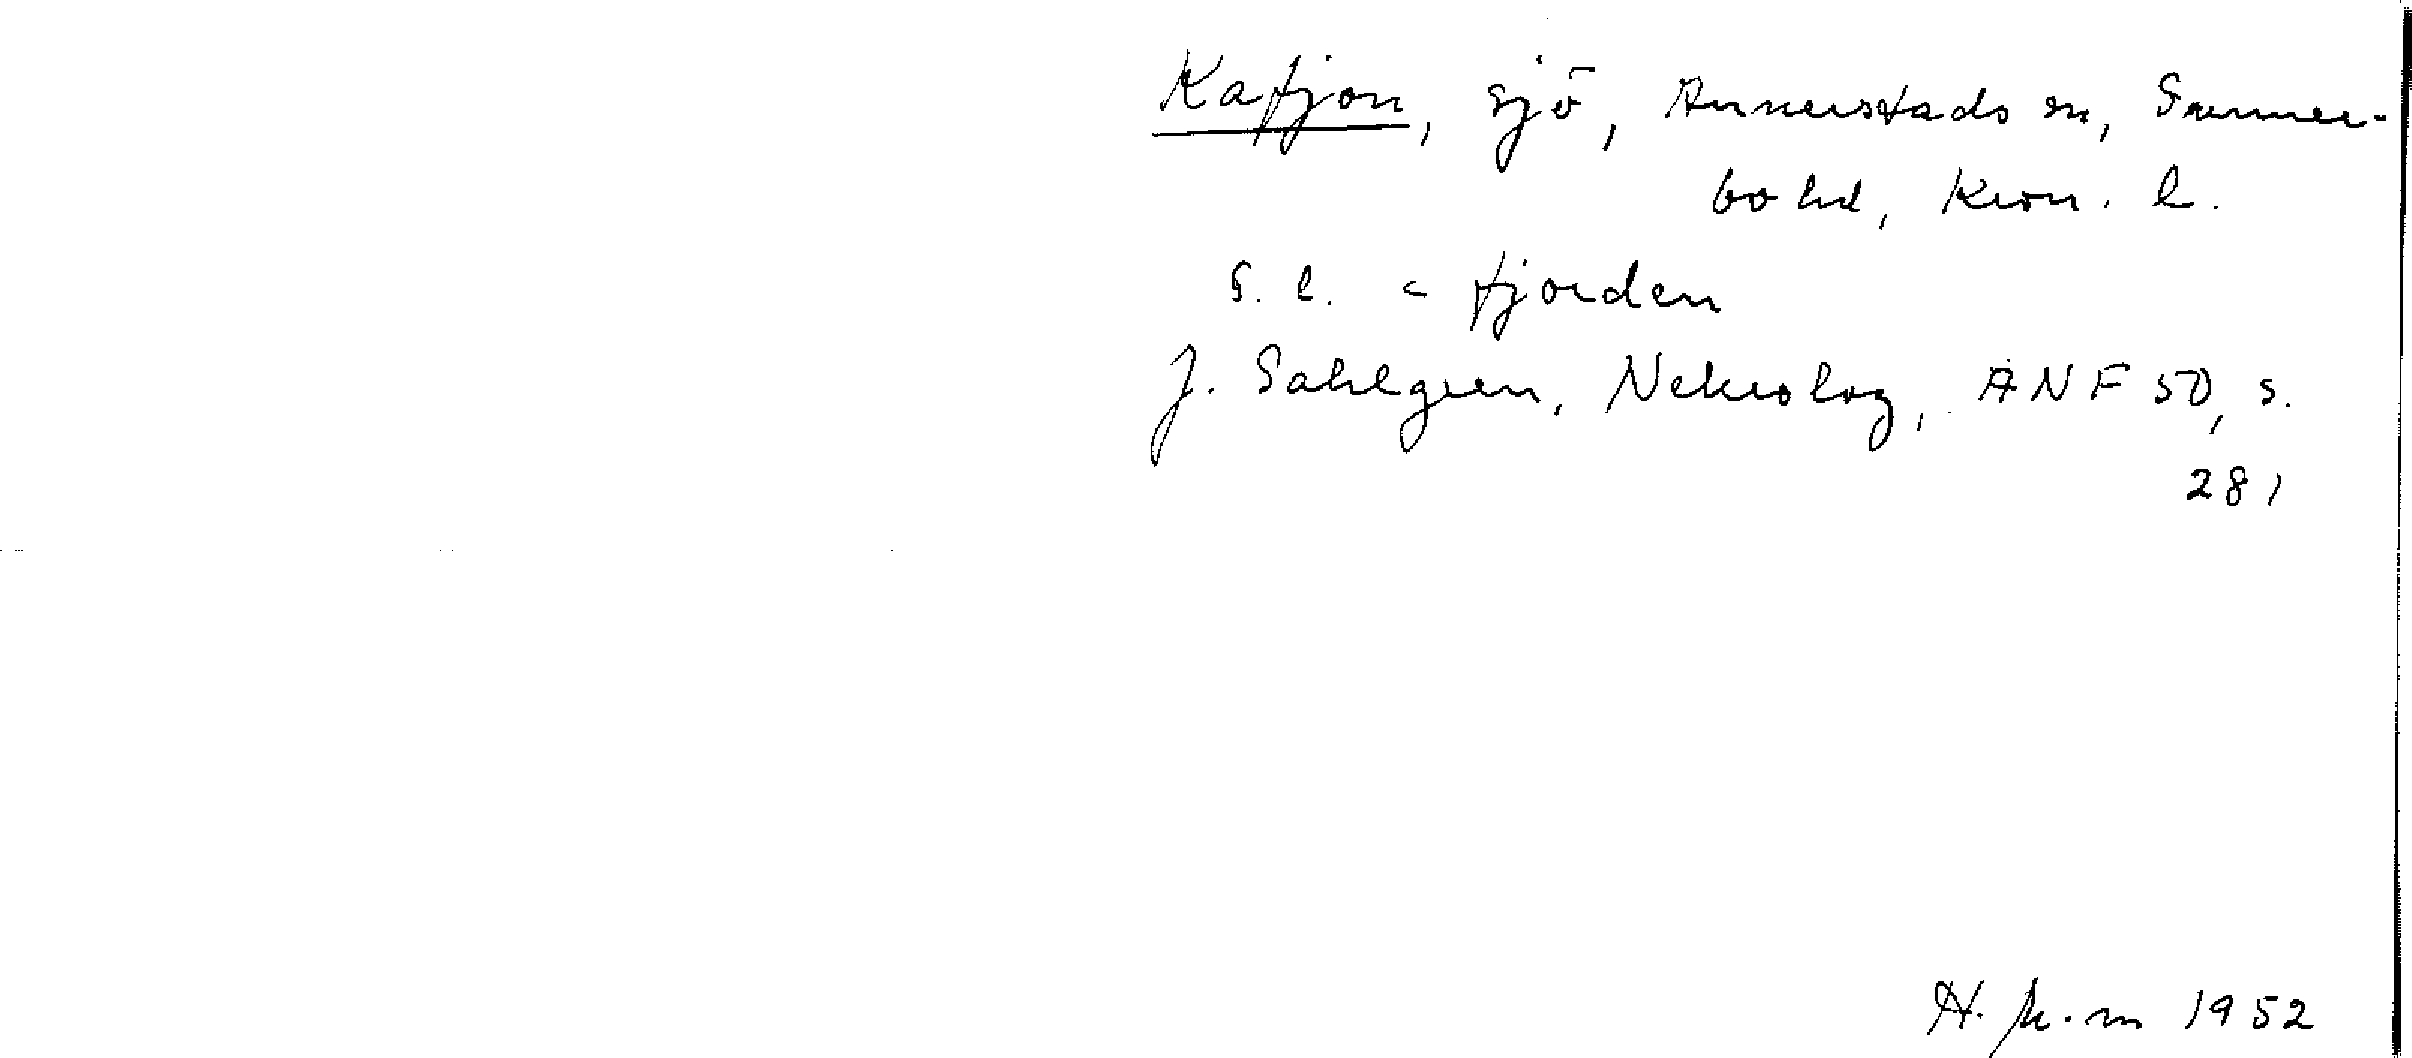 Kafjon, sjö, Annerstads sn, Sunner-
bo hd, Kron. l.
S. l. < fjorden
J. Sahlgren, Nekrolog, ANF 50, s.
281
1952